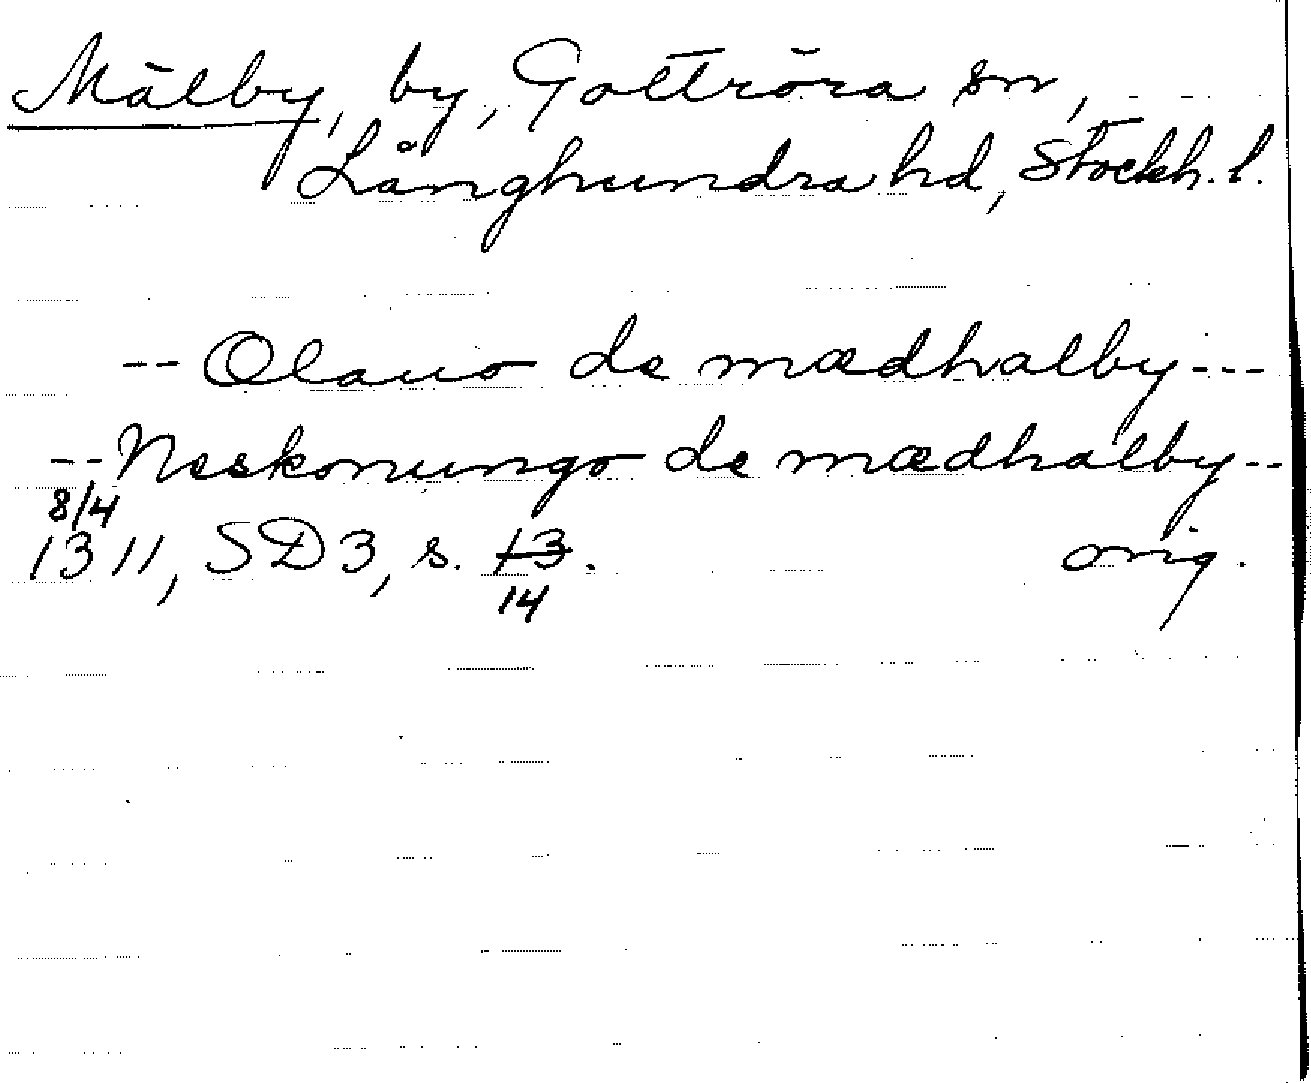 Mälby, by, Gottröra sn,
Långhundra hd, Stockh. l.
-- Olauo de mædhalby ---
-- Neskonungo de mædhalby --
8/4
1311, SD3, s. 13. orig.
14